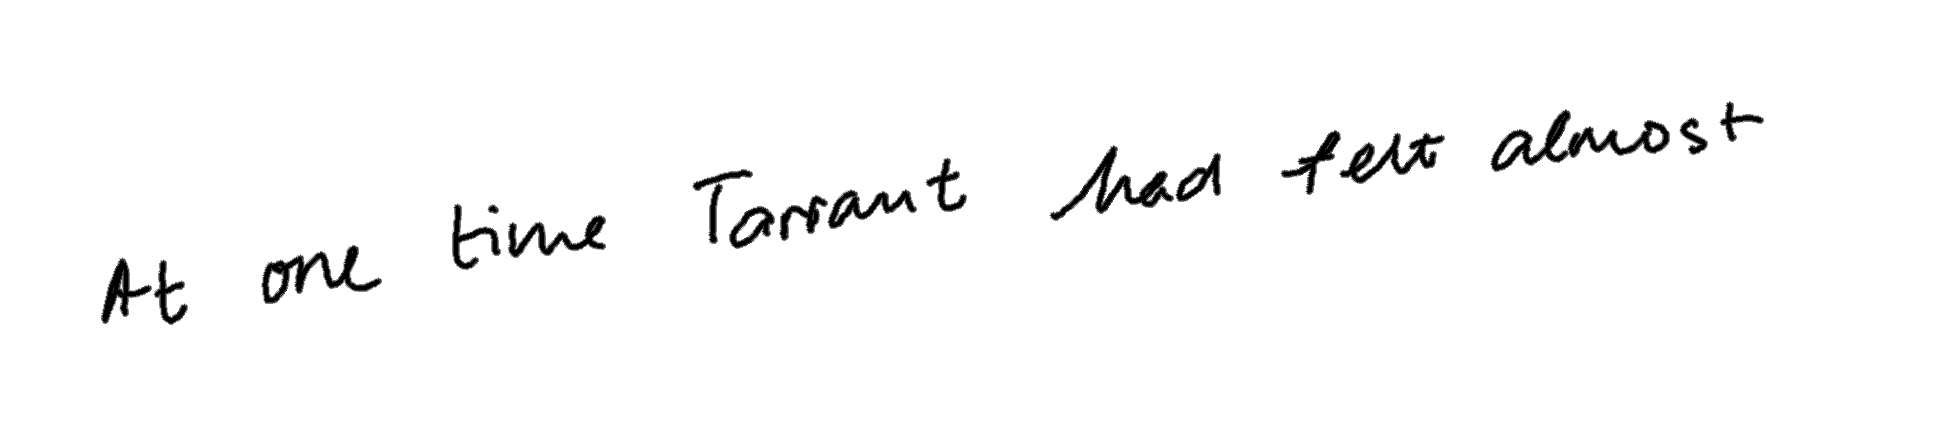 At one time Tarrant had felt almost